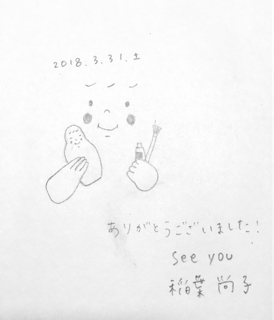 2018.3.31.土
ありがとうございました!
See you
稲葉 尚子